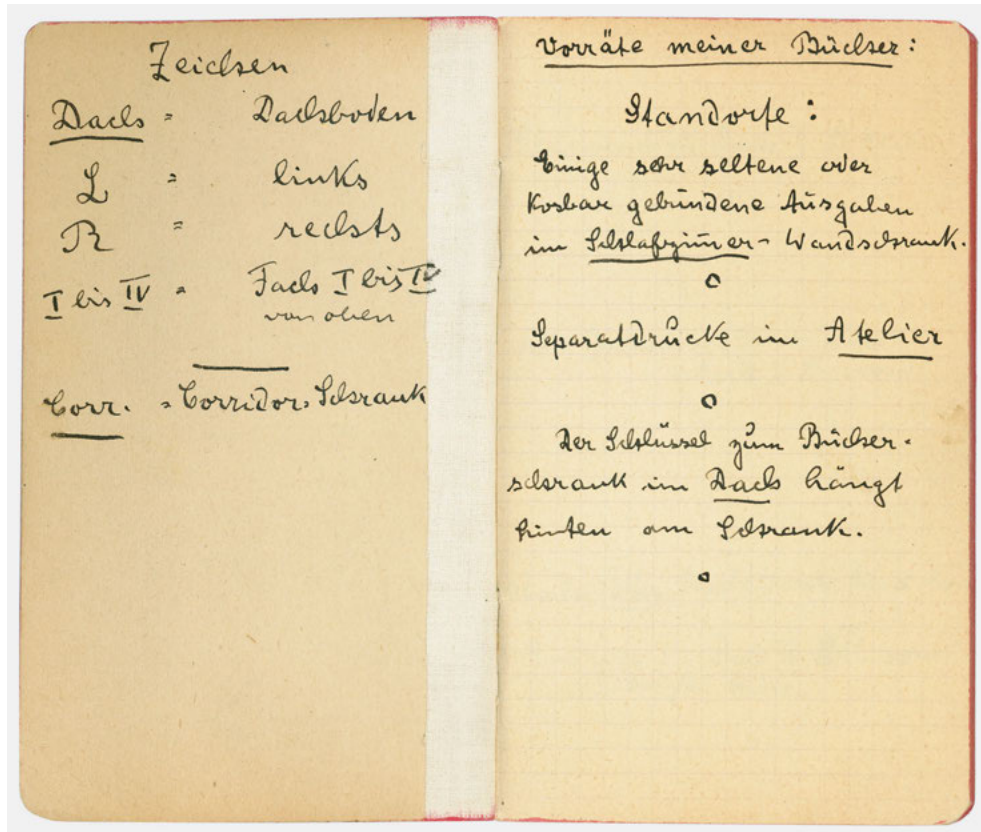 Zeichen
Dach = Dachboden
L = links
R = rechts
I bis IV = Fach I bis IV
von oben
Corr. = Corridor-Schrank
Vorräte meiner Bücher:
Standorte:
Einige sehr seltene oder
kosbar gebundene Ausgaben
im Schlafzimmer-Wandschrank.
Separatdrucke im Atelier
Der Schlüssel zum Bücher-
schrank im Dach hängt
hinten am Schrank.